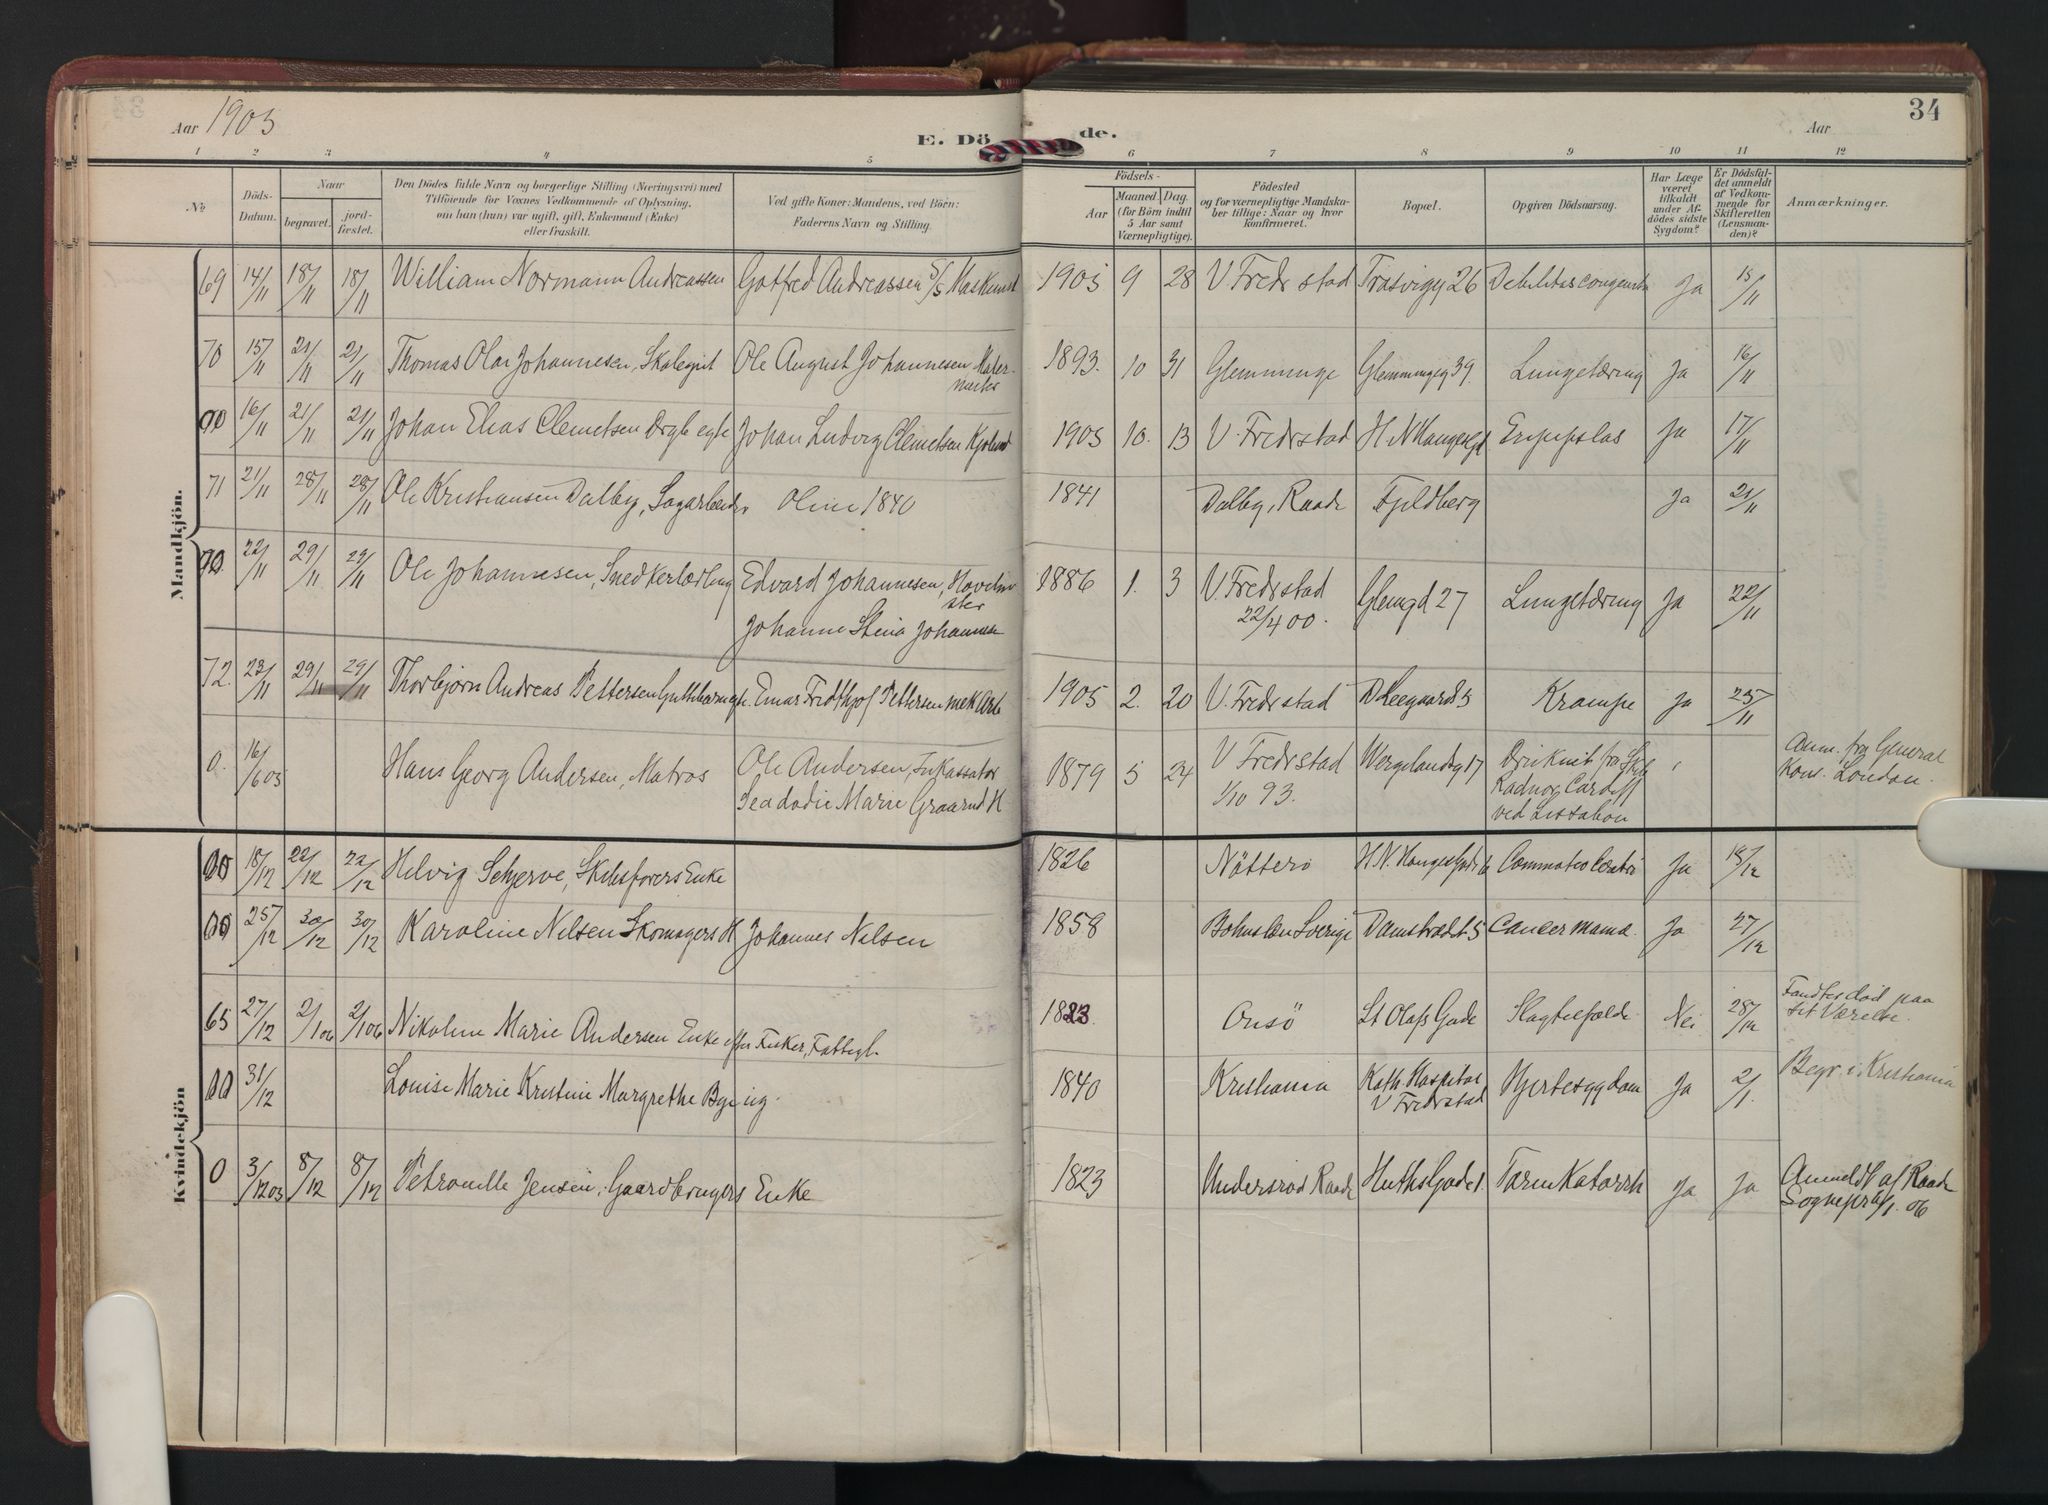 Aar 1905
E. Dö de.
Aar
34
1 2 3 4 5 6 7 8 9 10 11 12
No
Döds-Datum.
Naar
begravet.
jord-fæstet.
Den Dödes fulde Navn og borgerlige Stilling (Næringsvei) med
Tilföiende for Voxnes Vedkommende af Oplysning,
om han (hun) var ugift, gift, Enkemand (Enke)
eller fraskilt.
Ved gifte Koner: Mandens, ved Börn:
Faderens Navn og Stilling.
Födsels-
Aar
Maaned. Dag.
(for Börn indtil
5 Aar samt
Værnepligtige).
Födested
og for værnepligtige Mandska-
ber tillige: Naar og hvor
konfirmeret.
Bopæl.
Opgiven Dödsaarsag.
Har Læge
været
tilkaldt
under Af-
dödes sidste
Sygdom?
Er Dödsfal-
det anmeldt
af Vedkom-
mende for
Skifteretten
(Lensman-
den)?
Anmærkninger.
Mandkjön.
69 14/11 18/11 18/11 William Normann Andreassen Gotfred Andreassen 1905 9 28 V. Fredrstad Trosvigg 26 Debilitas congenita Ja 15/11
70 15/11 21/11 21/11 Thomas Olai Johannesen, Skolegut Ole August Johannesen Maler-
mester 1893. 10 31 Glemminge Glemmingeg 39. Lungetæring Ja 16/11
16/11 21/11 21/11 Johan Elias Clemetsen Johan Ludvig Clemetsen 1905 10. 13 V Fredrstad Ja 17/11
71 21/11 28/11 28/11 Ole Kristiansen Dalby, Sagarbeider Oline 1840 1841 Dalby, Raade Fjeldberg Ja 21/11
22/11 29/11 29/11 Ole Johannesen, Snedkerlærling Edvard Johannesen, Høvelme-
ster
Johanne Stina Johannesen 1886 1. 3 V. Fredrstad
22/4 00. Glemgd 27 Lungetæring Ja 22/11
72. 23/11 29/11 29/11 Thorbjørn Andreas Pettersen Guttebarn egte. Einar Fridthjof Pettersen mek Arb 1905 2. 20 V. Fredrstad Krampe Ja 25/11
0. 16/6 05 Hans Georg Andersen, Matros Ole Andersen, Inkassator
Marie 1879 5 24 V Fredrstad
1/10 93. Wergelandsg 17 Druknet fra Skib
Radnor Cardiff
ved Lissabon Anm. fra General
Kons. London.
Kvindekjön
18/12 22/12 22/12 Helvig Schjerve, Skibsførers Enke 1826 Nötterö H. N. Hauges Gade 6 Commotio Cerebri Ja 18/12
25/12 30/12 30/12 Karoline Nilsen Skomagers H. Johannes Nilsen 1858 Bohuslen Sverige Damstrædet 5 Cancer mama. Ja 27/12
65 27/12 2/1 06 2/1 06 Nikoline Marie Andersen Enke efter Fisker, Fattigl. 1823. Onsö St Olafs Gade Slagtilfælde Nei 28/12 Fandtes död paa
sit Værelse.
31/12 Louise Marie Kristine Margrethe 1840 Kristiania Kath. Hospital
V Fredrstad Hjertesygdom Ja 2/1. Begr. i Kristiania
0 3/12 05 8/12 8/12 Petronelle Jensen, Gaardbrugers Enke 1823 Raade Huths Gade 1. Tarmkatarrh Ja Ja Anmeldt af Raade
Sognepr 6/1. 06